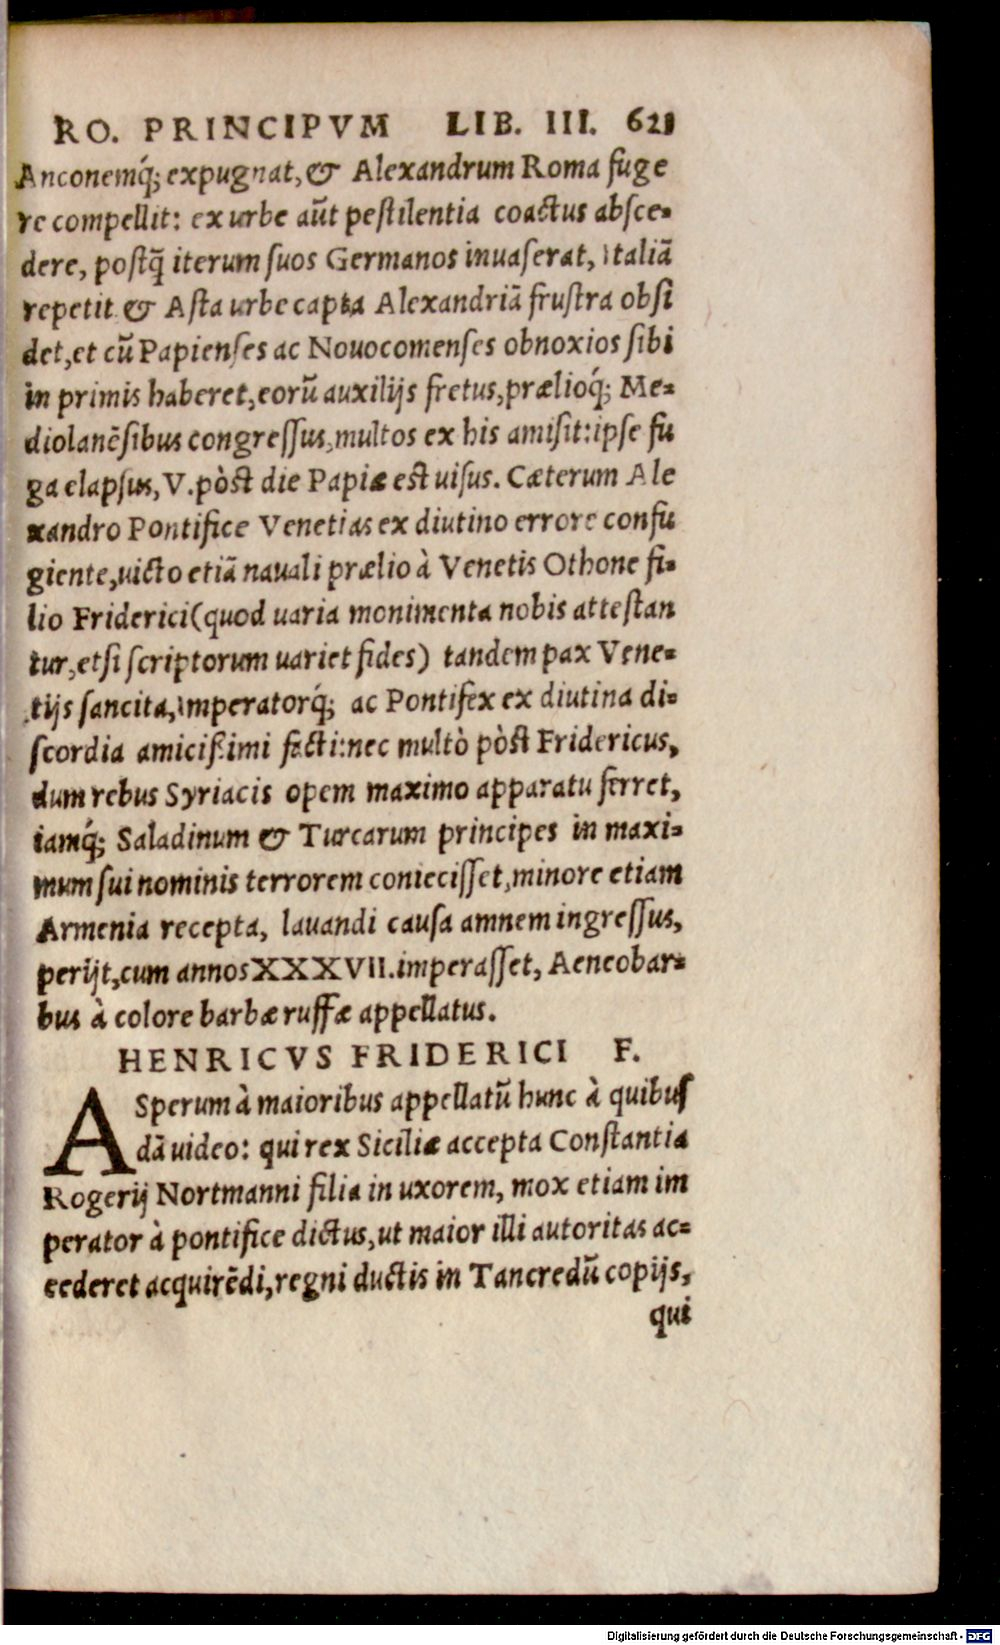 RO. PRINCIPVM LIB. III. 621
Anconemq́; expugnat, & Alexandrum Roma fuge
re compellit: ex urbe aūt peſtilentia coactus abſce-
dere, poſtq̄ iterum ſuos Germanos inuaſerat, Italiā
repetit & Aſta urbe capta Alexandriā fruſtra obſi
det, et cū Papienſes ac Nouocomenſes obnoxios ſibi
in primis haberet, eorū auxilijs fretus, prælioq́; Me-
diolanēſibus congreſſus, multos ex his amiſit: ipſe fu
ga elapſus, V. pòſt die Papiæ eſt uiſus. Cæterum Ale
xandro Pontifice Venetias ex diutino errore confu
giente, uicto etiā nauali prælio à Venetis Othone fi-
lio Friderici (quod uaria monimenta nobis atteſtan
tur, etſi ſcriptorum uariet fides) tandem pax Vene-
tijs ſancita, Imperatorq́; ac Pontifex ex diutina di-
ſcordia amiciſsimi facti: nec multò pòſt Fridericus,
dum rebus Syriacis opem maximo apparatu ferret,
iamq́; Saladinum & Turcarum principes in maxi-
mum ſui nominis terrorem conieciſſet, minore etiam
Armenia recepta, lauandi cauſa amnem ingreſſus,
perijt, cum annos XXXVII. imperaſſet, Aeneobar-
bus à colore barbæ ruffæ appellatus.
HENRICVS FRIDERICI F.
ASperum à maioribus appellatū hunc à quibuſ
dā uideo: qui rex Siciliæ accepta Conſtantia
Rogerij Nortmanni filia in uxorem, mox etiam im
perator à pontifice dictus, ut maior illi autoritas ac-
cederet acquirēdi, regni ductis in Tancredū copijs,
qui
Digitalisierung gefördert durch die Deutsche Forschungsgemeinschaft - DFG